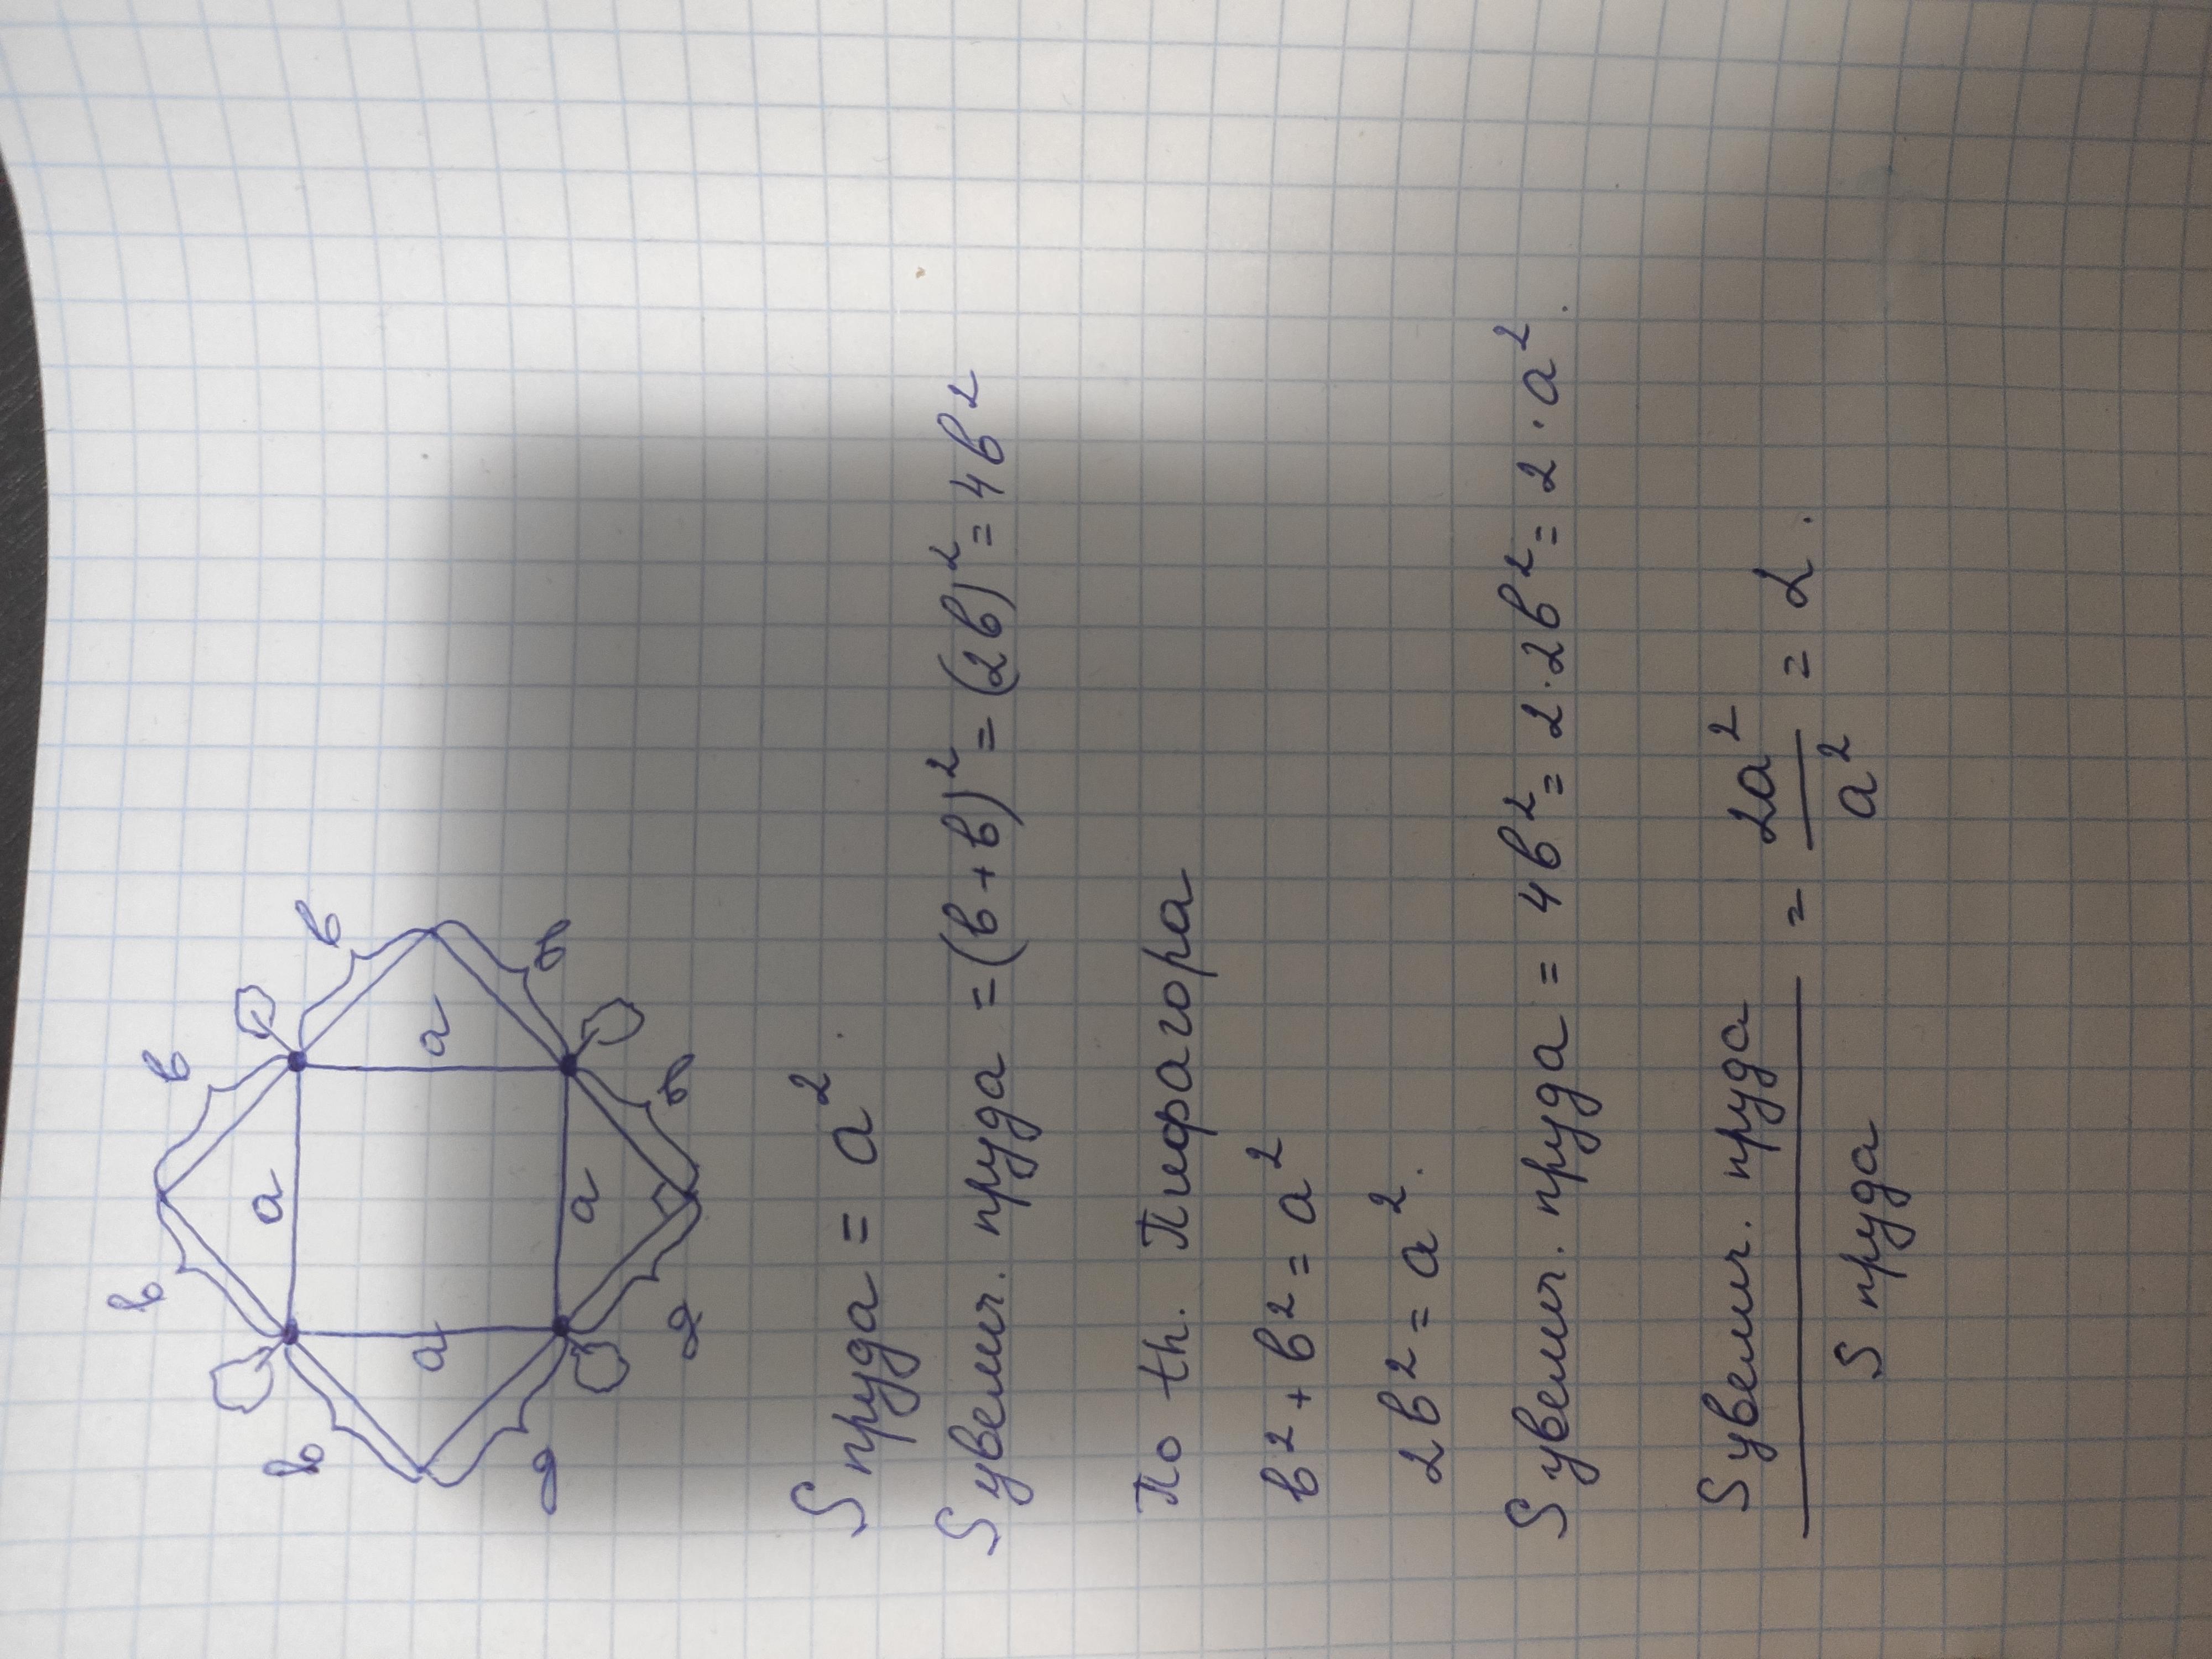 в в
в а в
а а
в а в
в в
S пруда = a².
S увелич. пруда = (в+в)² = (2в)² = 4в²
По th. Пифагора
в² + в² = a²
2в² = a².
S увелич. пруда = 4в² = 2·2в² = 2·a².
S увелич. пруда / S пруда = 2a² / a² = 2.